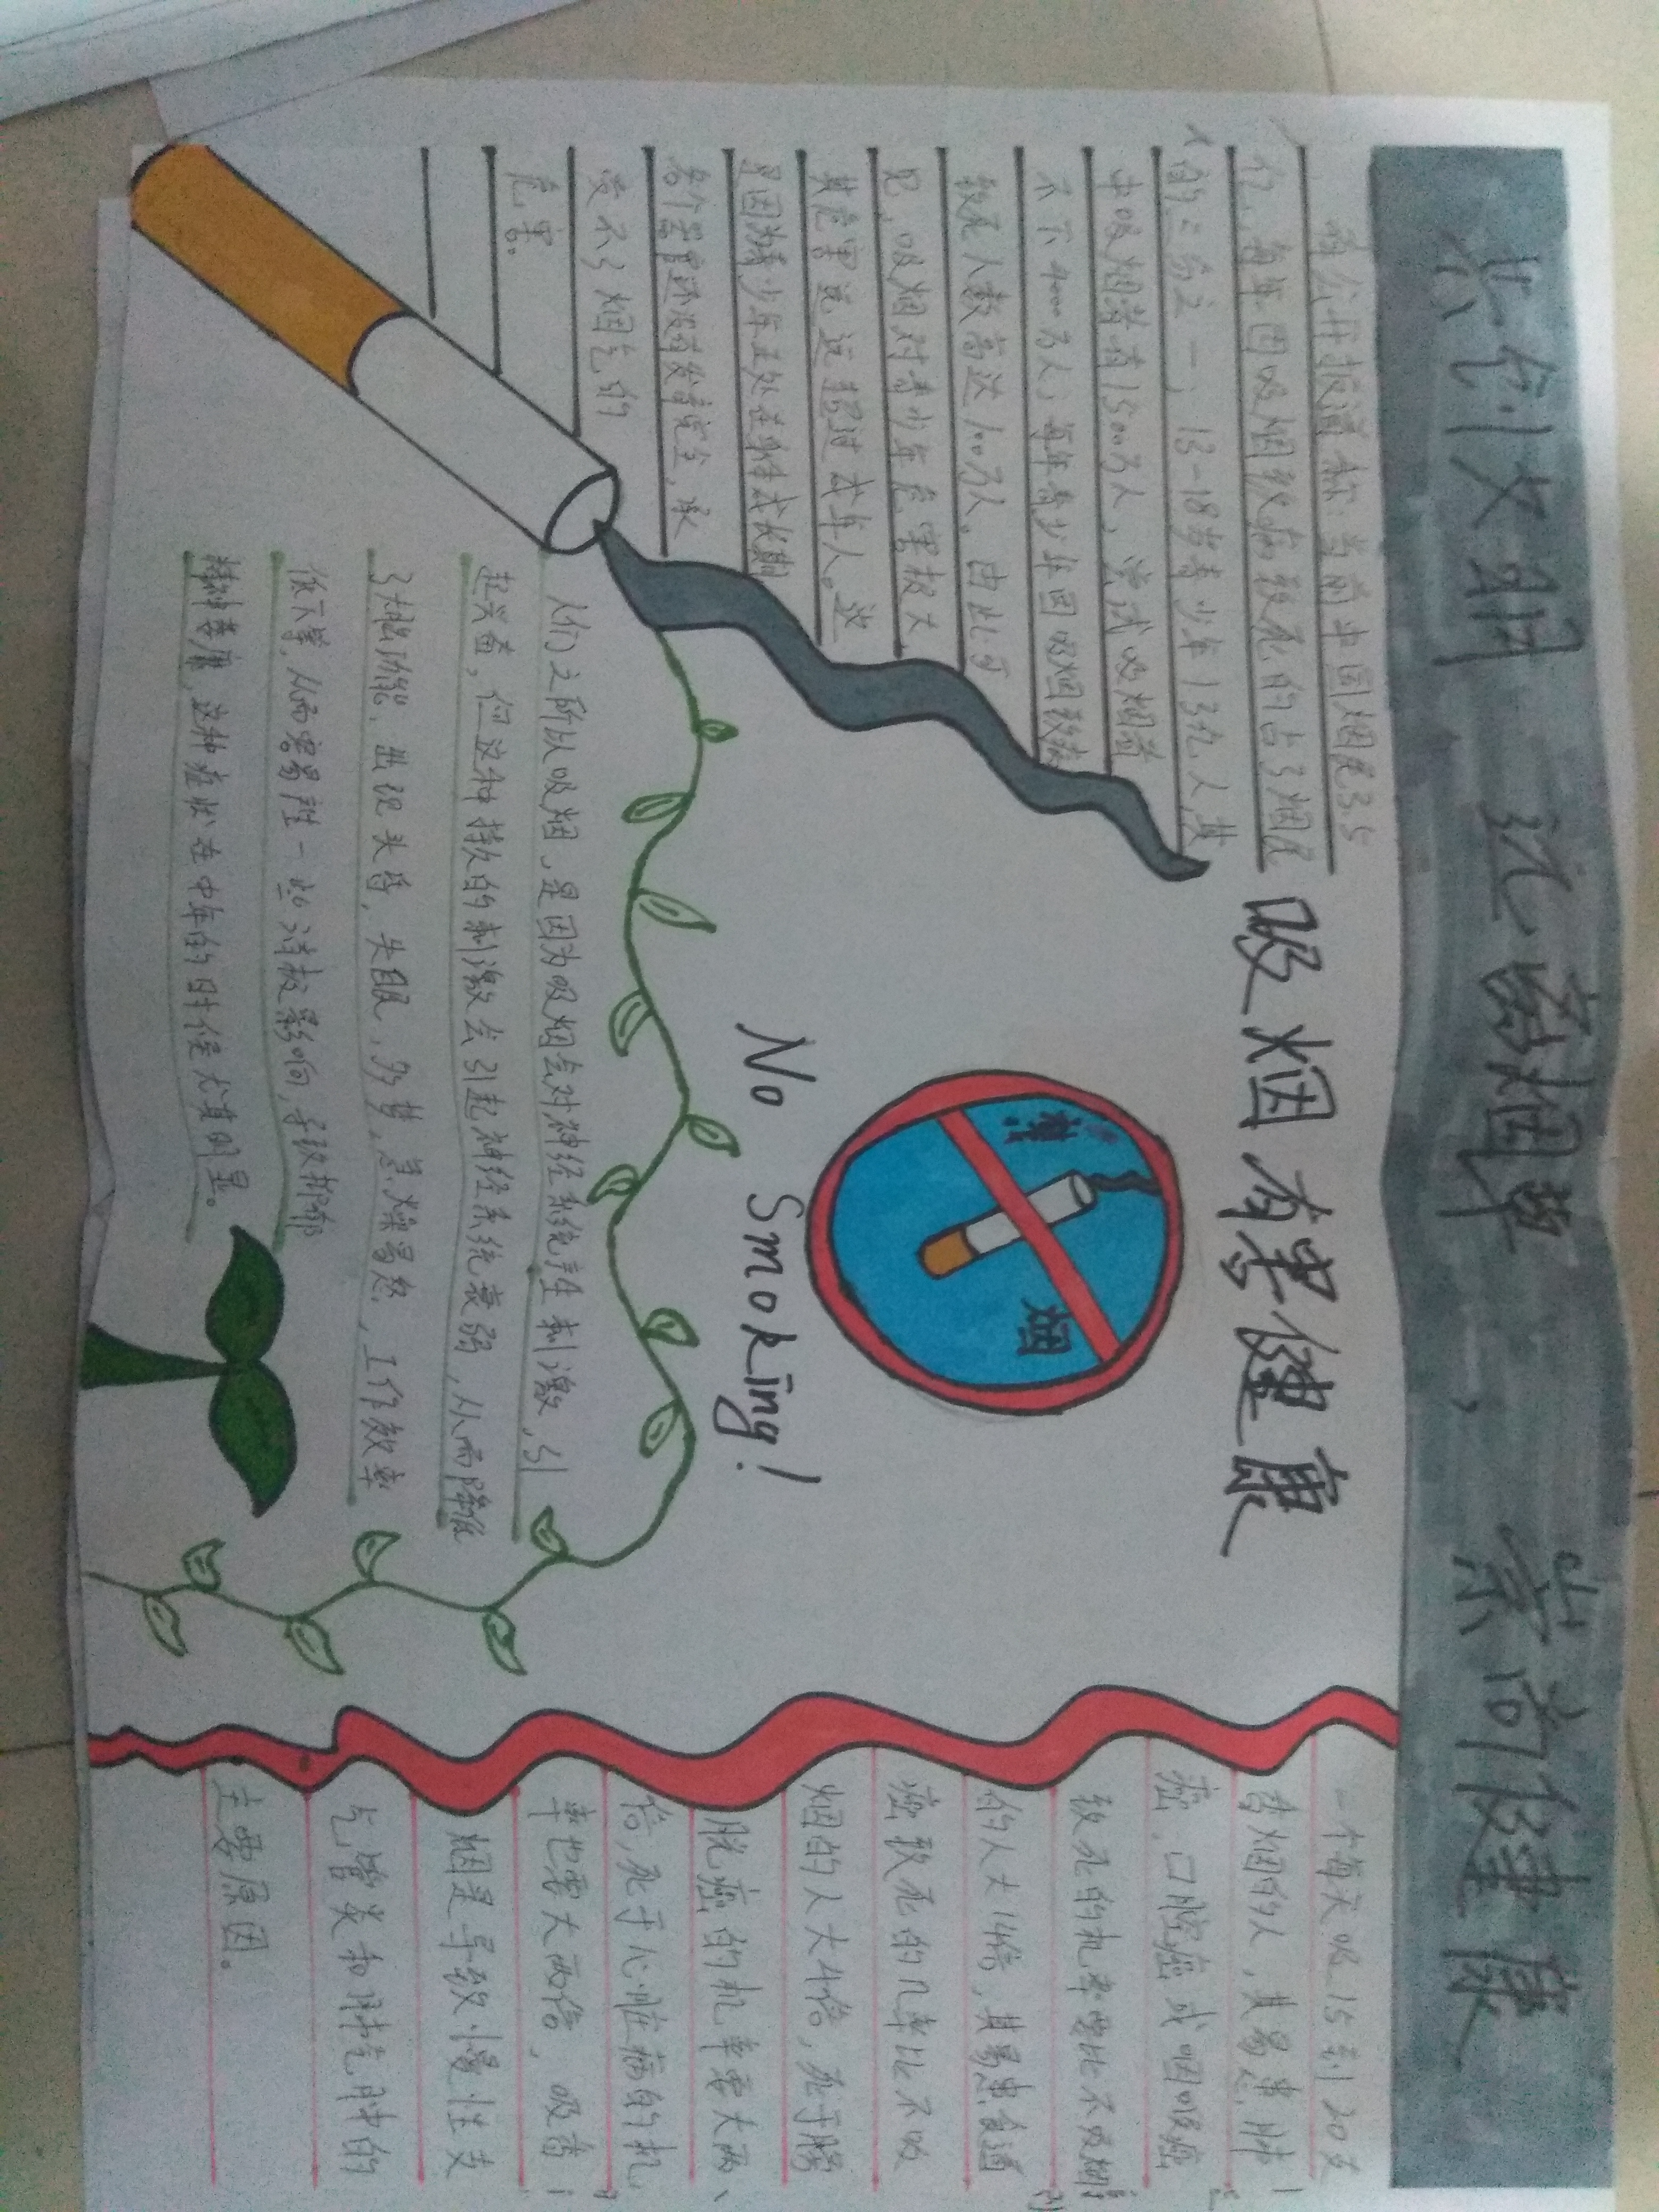 共创文明 远离烟草，崇尚健康
据公开报道称：当前中国烟民3.5
亿，每年因吸烟致病致死的占了烟民
的三分之一，13-18岁青少年1.3亿人，其
中吸烟者有1500万人，尝试吸烟者
不下4000万人；每年青少年因吸烟致病
致死人数高达100万人。由此可
见，吸烟对青少年危害极大
其危害远远超过成年人。这
是因为青少年正处在身体成长期
各个器官还没有发育完全，承
受不了烟气的
危害。
吸烟有害健康
禁烟
No Smoking!
人们之所以吸烟，是因为吸烟会对神经系统产生刺激，引
起兴奋，但这种持久的刺激会引起神经系统衰弱，从而降低
了大脑功能，出现头昏，失眠，多梦，急燥易怒，工作效率
低下等，从而容易产生一些消极影响，导致抑郁
精神萎靡，这种症状在中年的时候尤其明显。
一个每天吸15到20支
香烟的人，其易患肺
癌，口腔癌或咽喉癌
致死的机率要比不吸烟
的人大14倍，其易患食道
癌致死的几率比不吸
烟的人大4倍，死于膀
胱癌的机率要大两
倍，死于心脏病的机
率也要大两倍，吸香
烟是导致慢性支
气管炎和肺气肿的
主要原因。